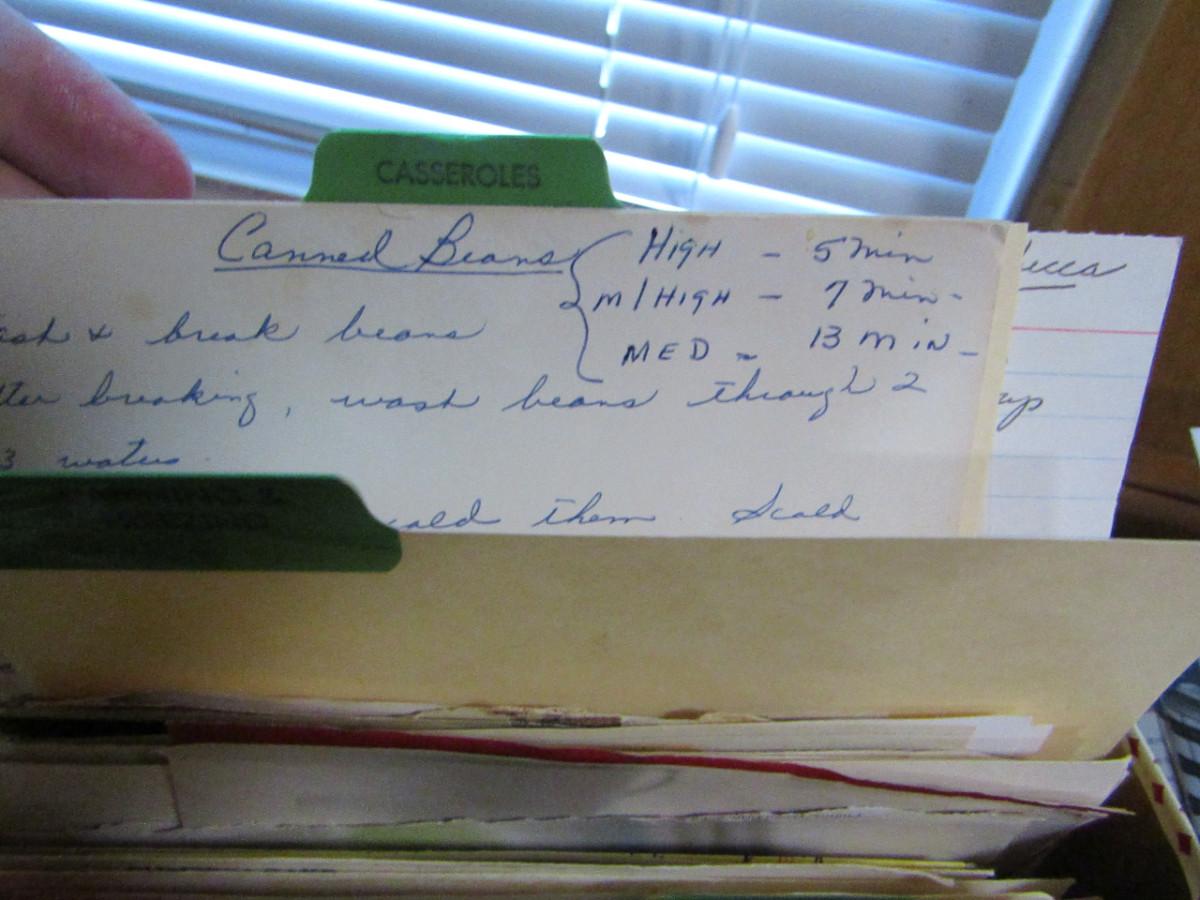 CASSEROLES
Canned Beans { HIGH - 5 Min
M/HIGH - 7 Min-
MED - 13 MIN-
& break beans
breaking, wash beans through 2
3 waters
them Scald